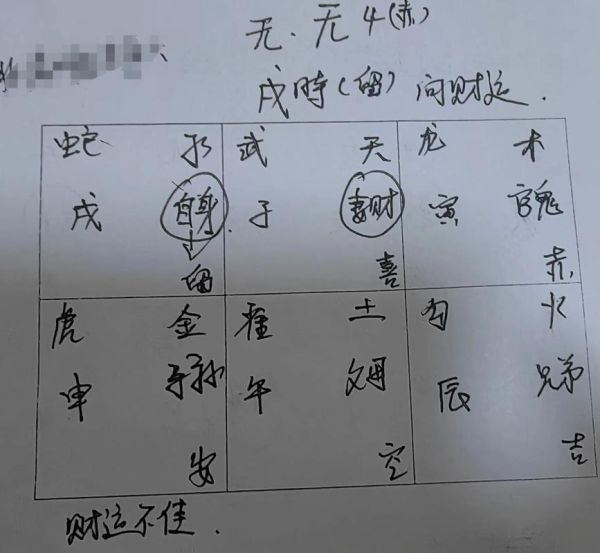 无、无4(赤)
戌時(留) 问财运.
蛇 水 武 天 龙 木
戌 自身 子 妻财 寅 官鬼
留 喜 赤
虎 金 雀 土 勾 火
申 子孙 午 父母 辰 兄弟
安 空 吉
财运不佳.